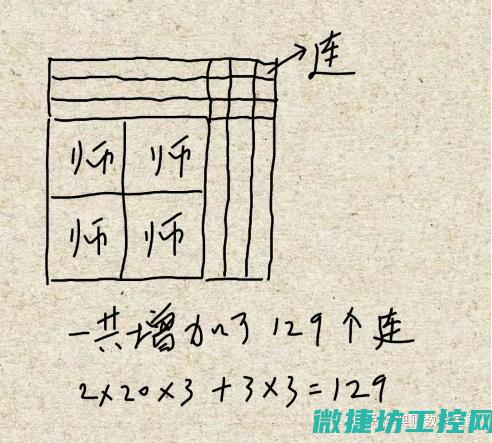 连
师 师
师 师
一共增加了129个连
2×20×3+3×3=129
微捷坊工控网